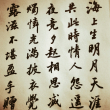 海上生明月天涯
共此時情人怨遙
夜竟夕起相思滅
燭憐光滿披衣覺
露滋不堪盈手贈